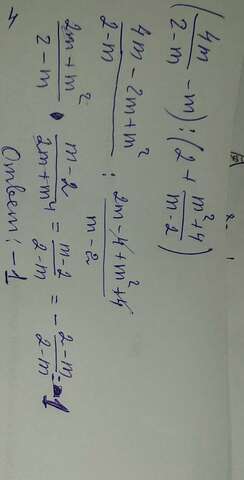 (4m/(2-m) - m) : (2 + (m²+4)/(m-2))
(4m - 2m + m²)/(2-m) : (2m - 4 + m² + 4)/(m-2)
(2m + m²)/(2-m) · (m-2)/(2m+m⁴) = (m-2)/(2-m) = - (2-m)/(2-m) = -1
Ответ: -1